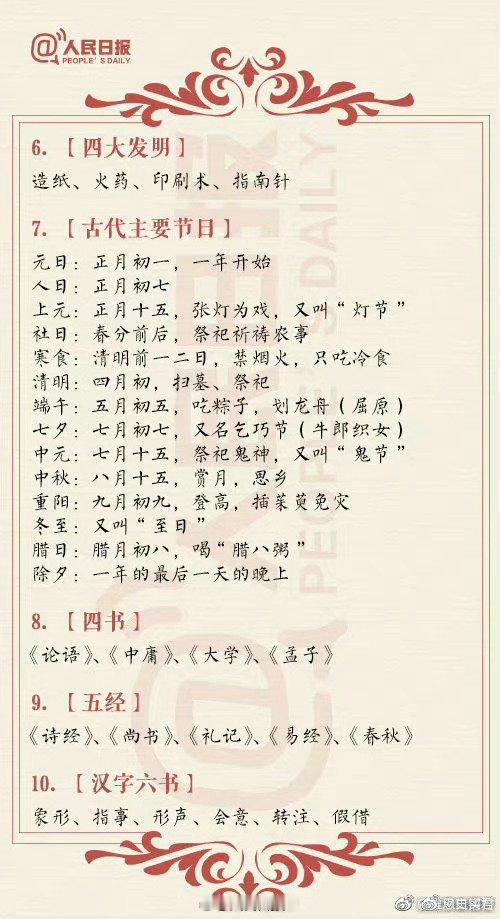 @人民日报
PEOPLE'S DAILY
6.【四大发明】
造纸、火药、印刷术、指南针
7.【古代主要节日】
元日：正月初一，一年开始
人日：正月初七
上元：正月十五，张灯为戏，又叫“灯节”
社日：春分前后，祭祀祈祷农事
寒食：清明前一二日，禁烟火，只吃冷食
清明：四月初，扫墓、祭祀
端午：五月初五，吃粽子，划龙舟（屈原）
七夕：七月初七，又名乞巧节（牛郎织女）
中元：七月十五，祭祀鬼神，又叫“鬼节”
中秋：八月十五，赏月，思乡
重阳：九月初九，登高，插茱萸免灾
冬至：又叫“至日”
腊日：腊月初八，喝“腊八粥”
除夕：一年的最后一天的晚上
8.【四书】
《论语》、《中庸》、《大学》、《孟子》
9.【五经】
《诗经》、《尚书》、《礼记》、《易经》、《春秋》
10.【汉字六书】
象形、指事、形声、会意、转注、假借